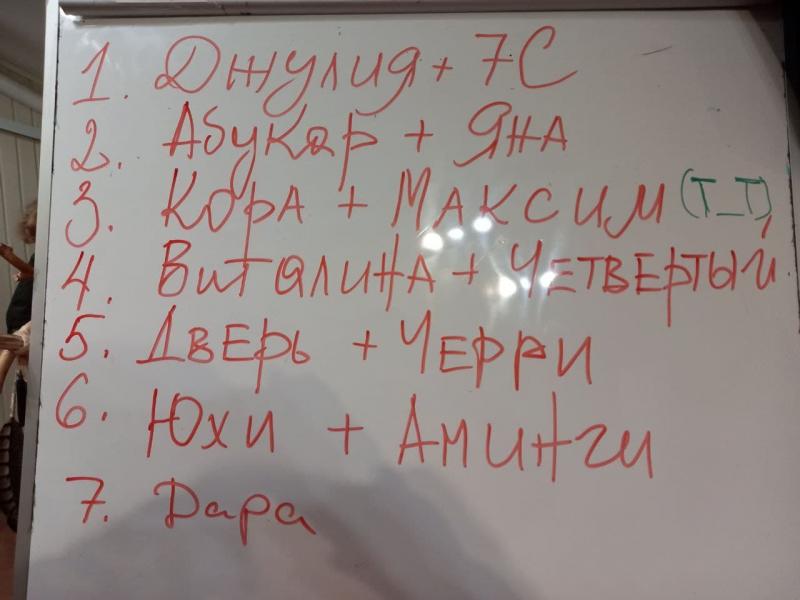 1. Джулия + 7С
2. Абукар + Яна
3. Кора + Максим (T_T)
4. Виталина + Четвертый
5. Дверь + Черри
6. Юхи + Аминги
7. Дара